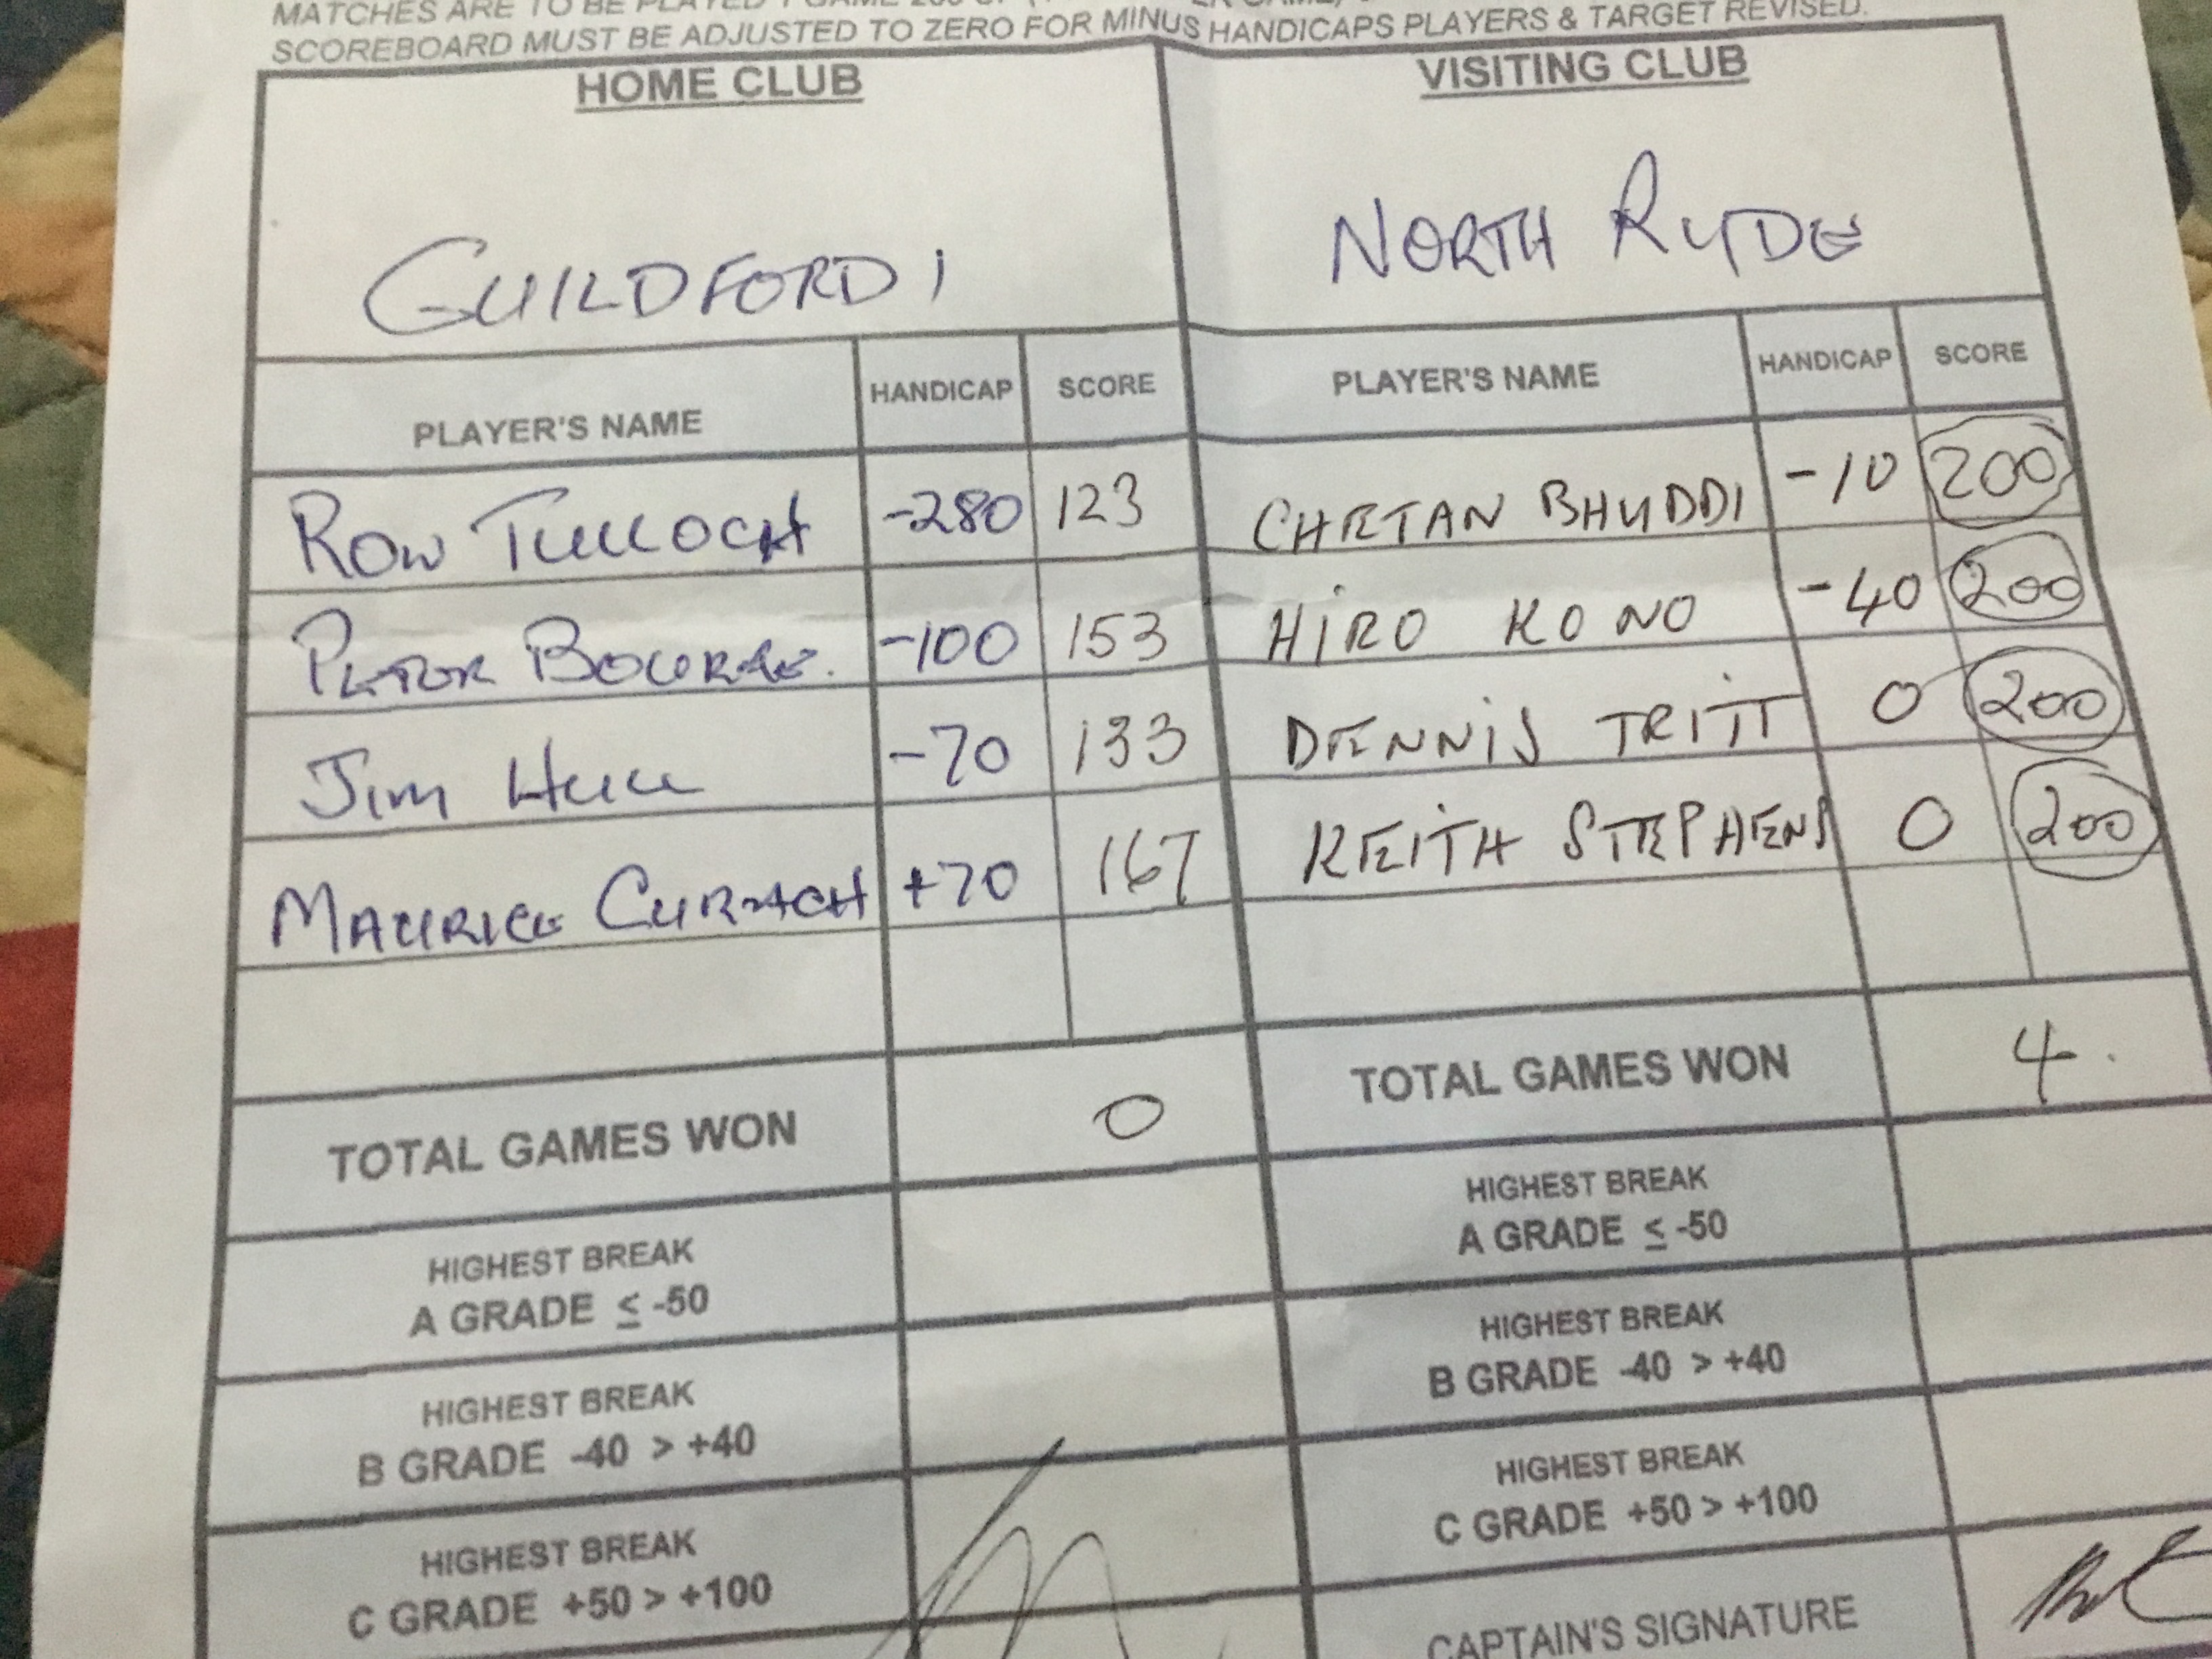 MATCHES ARE TO BE PLAYED 1 GAME
SCOREBOARD MUST BE ADJUSTED TO ZERO FOR MINUS HANDICAPS PLAYERS & TARGET REVISED.
HOME CLUB VISITING CLUB
GUILDFORD 1 NORTH RYDE
PLAYER'S NAME HANDICAP SCORE PLAYER'S NAME HANDICAP SCORE
RON TULLOCH -280 123 CHETAN BHUDDI -10 200
PETER BOURKE. -100 153 HIRO KONO -40 200
JIM HULL -70 133 DENNIS TRITT 0 200
MAURICE CURRACH +70 167 KEITH STEPHENS 0 200
TOTAL GAMES WON 0 TOTAL GAMES WON 4
HIGHEST BREAK HIGHEST BREAK
A GRADE ≤ -50 A GRADE ≤ -50
HIGHEST BREAK HIGHEST BREAK
B GRADE -40 > +40 B GRADE -40 > +40
HIGHEST BREAK HIGHEST BREAK
C GRADE +50 > +100 C GRADE +50 > +100
CAPTAIN'S SIGNATURE